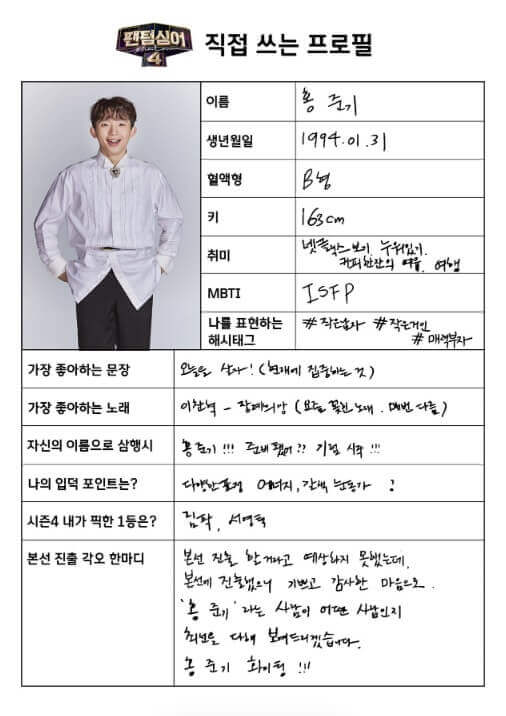 팬텀싱어
4
직접 쓰는 프로필
이름 홍 준기
생년월일 1994.01.31
혈액형 B형
키 163cm
취미 넷플릭스보기, 누워있기,
커피한잔의 여유, 여행
MBTI ISFP
나를 표현하는
해시태그
#작은남자 #작은거인
#매력부자
가장 좋아하는 문장 오늘을 살자! (현재에 집중하는 것)
가장 좋아하는 노래 이찬혁 - 장례희망 (요즘 꽂힌 노래. 매번 다름)
자신의 이름으로 삼행시 홍준기!!! 준비됐어?? 기럼 시작!!!
나의 입덕 포인트는? 다양한 표정 에너지,
시즌4 내가 픽한 1등은? 서영택
본선 진출 각오 한마디
본선 진출 할거라고 예상하지 못했는데,
본선에 진출했으니 기쁘고 감사한 마음으로.
'홍 준기' 라는 사람이 어떤 사람인지
최선을 다해 보여드리겠습니다.
홍 준기 화이팅 !!!